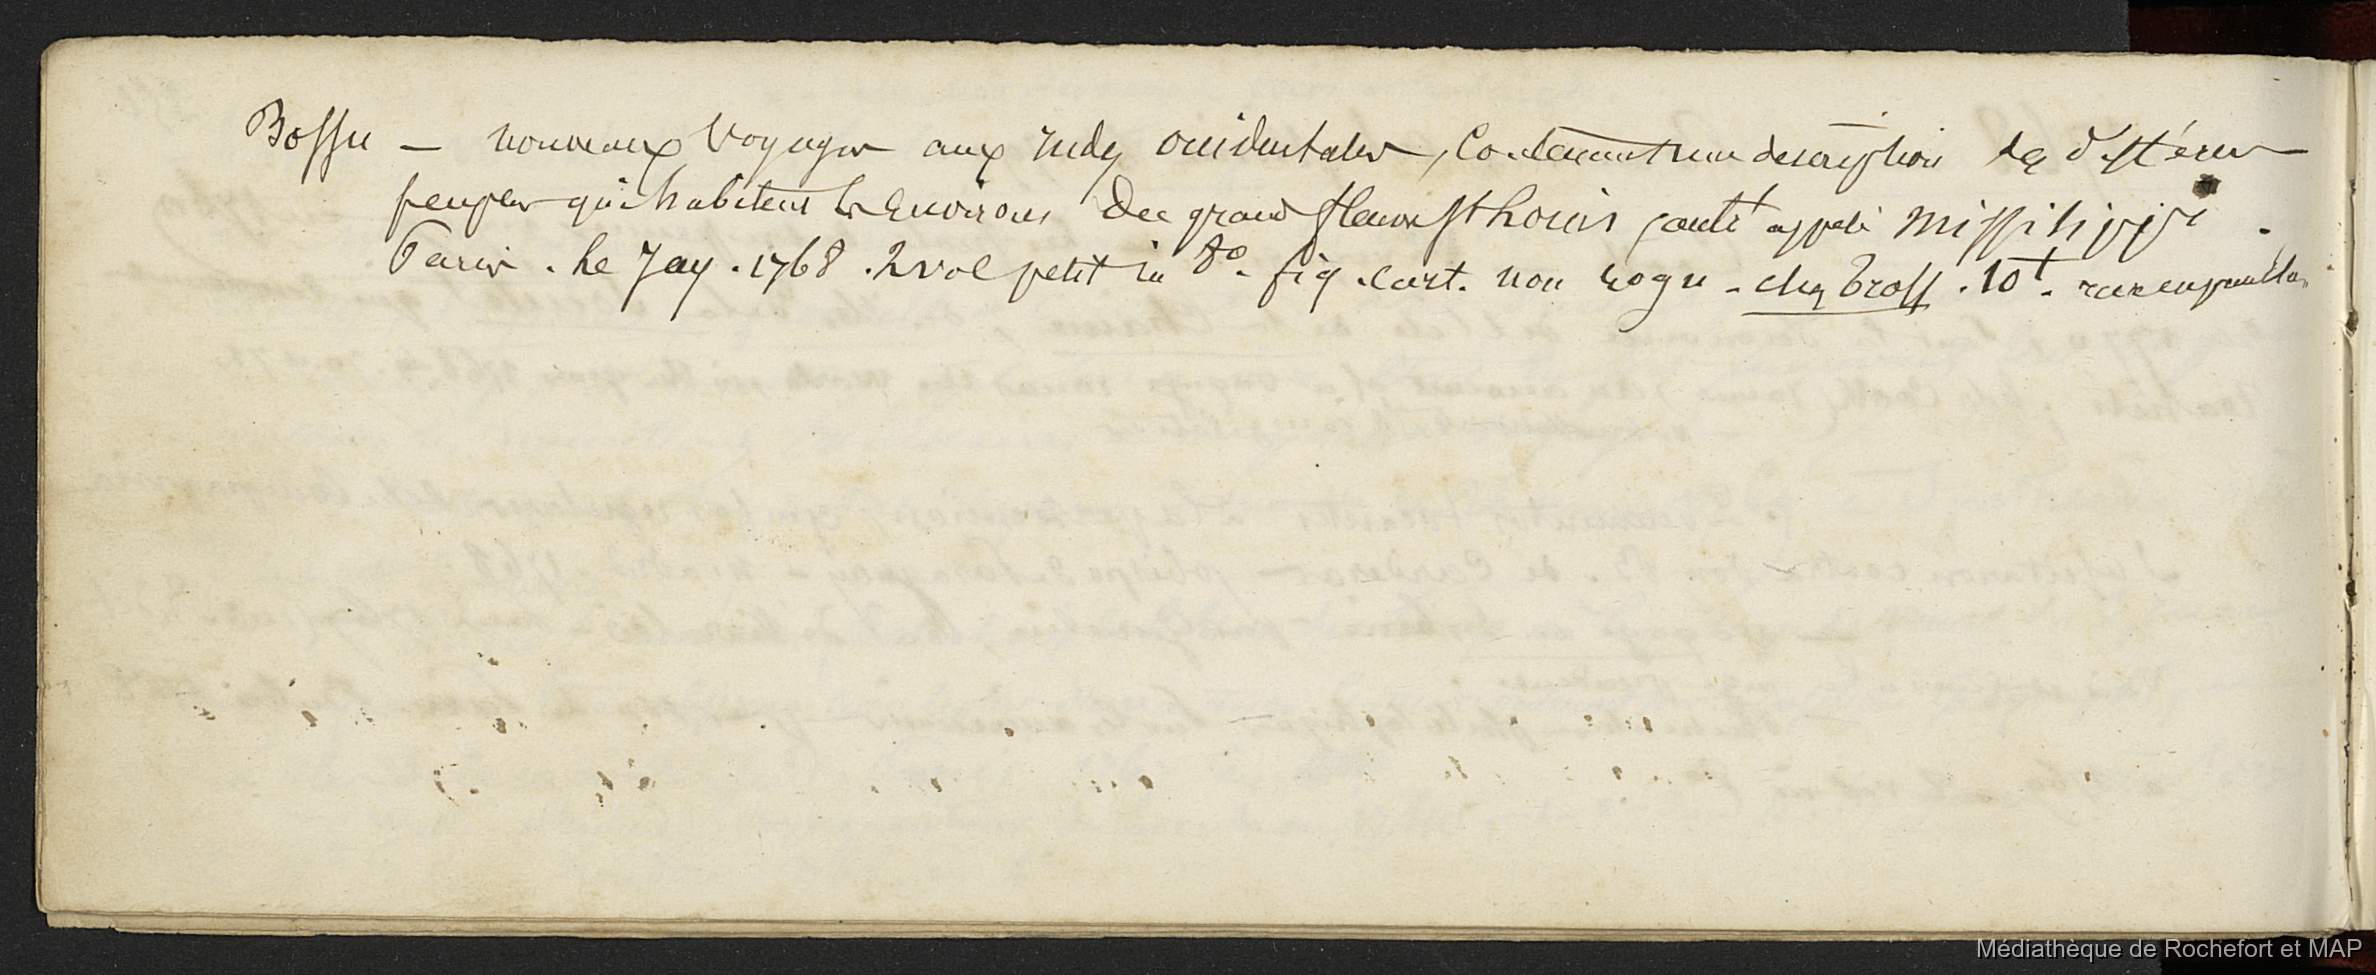 Bossu — nouveaux Voyages aux Indes occidentales, Contenant une description des différens
peuples qui habitent les Environs du grand fleuve St Louis appelé Mississippi.
Paris. Le Jay. 1768. 2 vol petit in 8°. fig. cart. non rogn - chez Tross. 10f.
Médiathèque de Rochefort et MAP